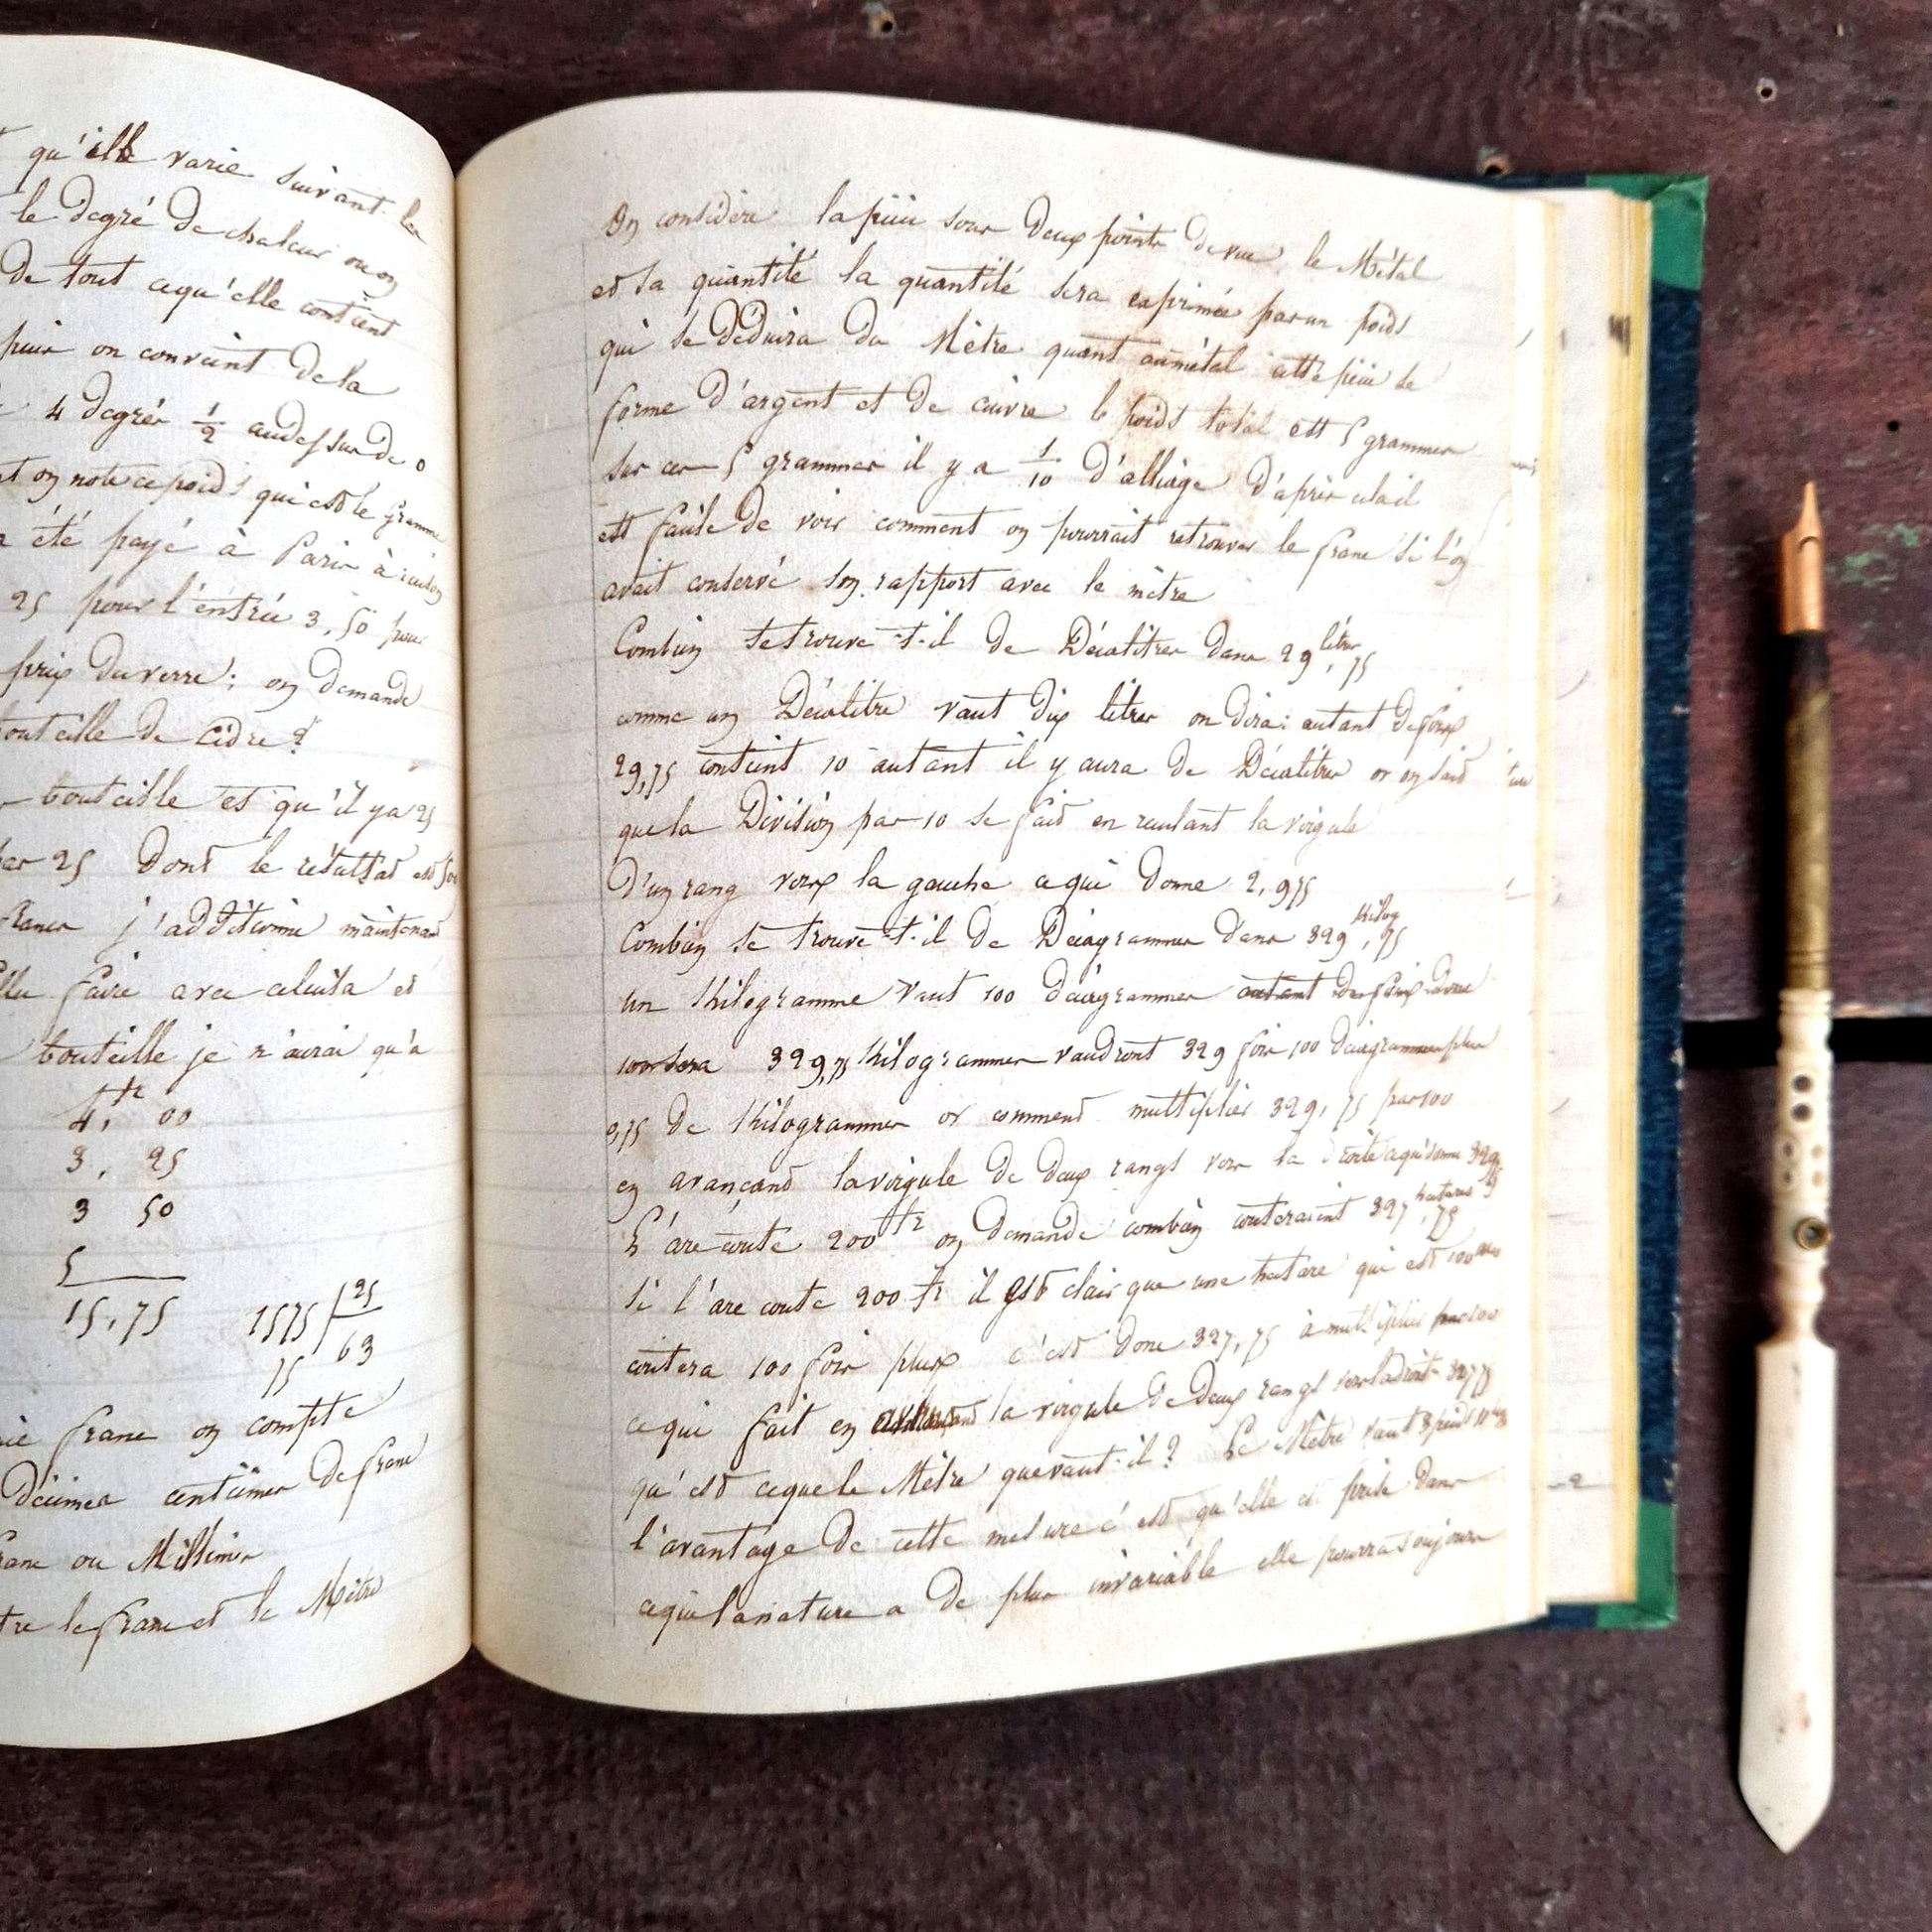 qu'elle varie suivant les
le degré de chaleur ou on
De tout cequ'elle contient
puis on convint Dela
4 degrés 1/2 audessus de 0
et on note ce poids qui est le gramme
a été payé à Paris à raison
25 pour l'entrée 3,50 pour
prix du verre; on demande
bouteille de Cidre?
bouteille et qu'il y a 25
par 25 Dont le résultat est
francs j'additionne maintenant
faire avec celuila et
bouteille je n'aurai qu'a
4, fr 00
3, 25
3 50
5
15,75 1575 25
75 63
franc on compte
Décimes centimes De franc
franc ou Millimes
tre le franc et le Mètre
On considère la pièce sous Deux points de vue le Métal
et sa quantité la quantité sera exprimée par un poids
qui se déduira du Mètre quant aumétal cette pièce se
forme D'argent et De cuivre le poids total est 5 grammes
sur ces 5 grammes il y a 1/10 D'alliage D'après cela il
est facile de voir comment on pourrait retrouver le franc si l'on
avait conservé son rapport avec le mètre
Combien se trouve-t-il de Décalitres dans 29 litres,75
comme un Décalitre vaut dix litres on dira: autant de foix
29,75 contient 10 autant il y aura de Décalitres or on said
que la Division par 10 se faid en reculant la virgule
D'un rang verx la gauche ce qui donne 2,975
Combien se trouve-t-il de Décagrammes dans 329 Kilog,75
un Kilogramme vaut 100 décagrammes autant de foix
329,75 Kilogrammes vaudront 329 fois 100 Décagrammes plus
0,75 de Kilogrammes or commend multiplier 329,75 par 100
en avançand la virgule de deux rangs vers la droite ce qui donne
L'are coute 200 fr on demande combien couteraient 327 hectares,75
Si l'are coute 200 fr il est clair que une hectare qui est 100 ares
coutera 100 fois plux c'est Donc 327,75 à multiplier par 100
ce qui fait en la virgule de Deux rangs vers la droite 32775
qu'est ce que le Mètre que vaut-il? Le Mètre vaut 3 pieds
l'avantage De cette mesure c'est qu'elle est prise Dans
ce que la nature a De plus invariable elle pourra toujours